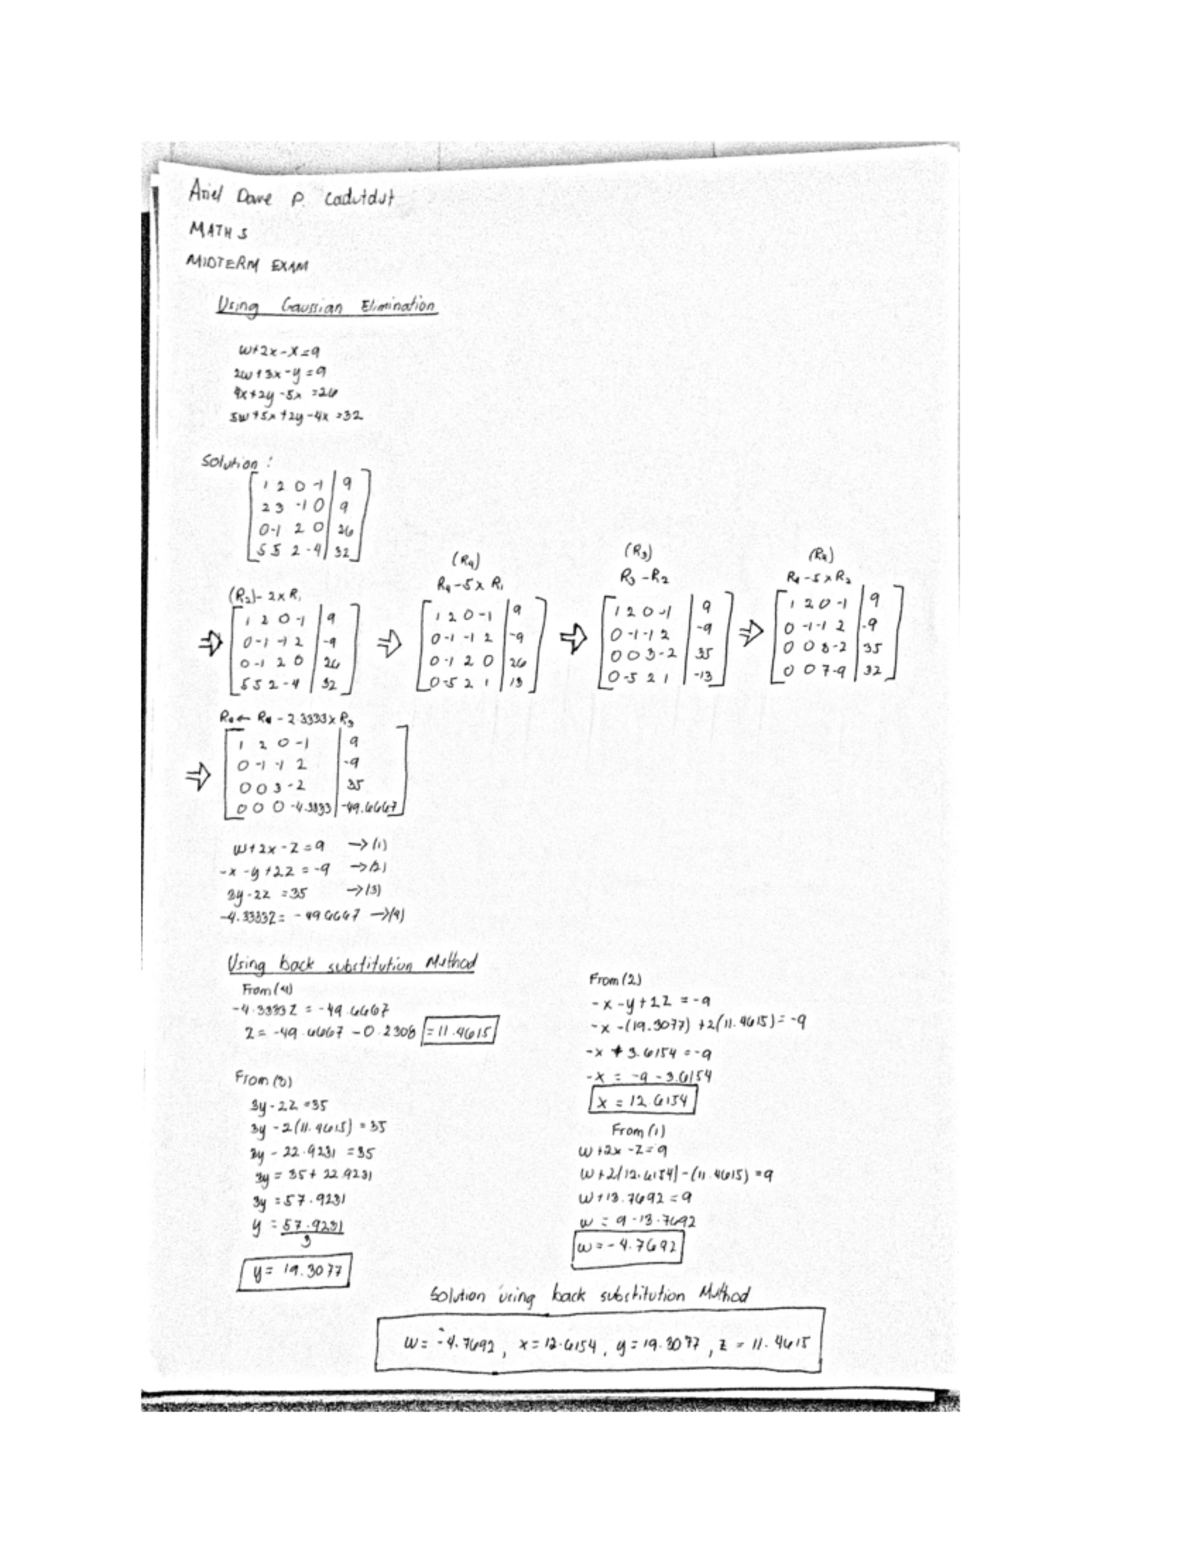 Ariel Dave P. Cadutdut
MATH 5
MIDTERM EXAM
Using Gaussian Elimination
w+2x-x=9
2w+3x-y=9
4x+2y-5x=26
5w+5x+2y-4x=32
Solution:
1 2 0 -1 | 9
2 3 -1 0 | 9
0 -1 2 0 | 26
5 5 2 -4 | 32
(R2)- 2x R1
1 2 0 -1 | 9
0 -1 -1 2 | -9
0 -1 2 0 | 26
5 5 2 -4 | 32
(R4)
R4-5x R1
1 2 0 -1 | 9
0 -1 -1 2 | -9
0 -1 2 0 | 26
0 -5 2 1 | 13
(R3)
R3-R2
1 2 0 -1 | 9
0 -1 -1 2 | -9
0 0 3 -2 | 35
0 -5 2 1 | -13
(R4)
R4-5xR2
1 2 0 -1 | 9
0 -1 -1 2 | -9
0 0 3 -2 | 35
0 0 7 -9 | 32
R4 ← R4 - 2.3333x R3
1 2 0 -1 | 9
0 -1 -1 2 | -9
0 0 3 -2 | 35
0 0 0 -4.3333 | -49.6667
w+2x-z=9 →(1)
-x-y+2z=-9 →(2)
3y-2z=35 →(3)
-4.3333z=-49.6667 →(4)
Using back substitution Method
From (4)
-4.3333z = -49.6667
z = -49.6667 -0.2308 =11.4615
From (3)
3y-2z=35
3y-2(11.4615)=35
3y-22.9231=35
3y=35+22.9231
3y=57.9231
y=57.9231
3
y=19.3077
From (2)
-x-y+2z=-9
-x-(19.3077)+2(11.4615)=-9
-x+3.6154=-9
-x=-9-3.6154
x=12.6154
From (1)
w+2x-z=9
w+2(12.6154)-(11.4615)=9
w+13.7692=9
w=9-13.7692
w=-4.7692
Solution using back substitution Method
w=-4.7692, x=12.6154, y=19.3077, z=11.4615